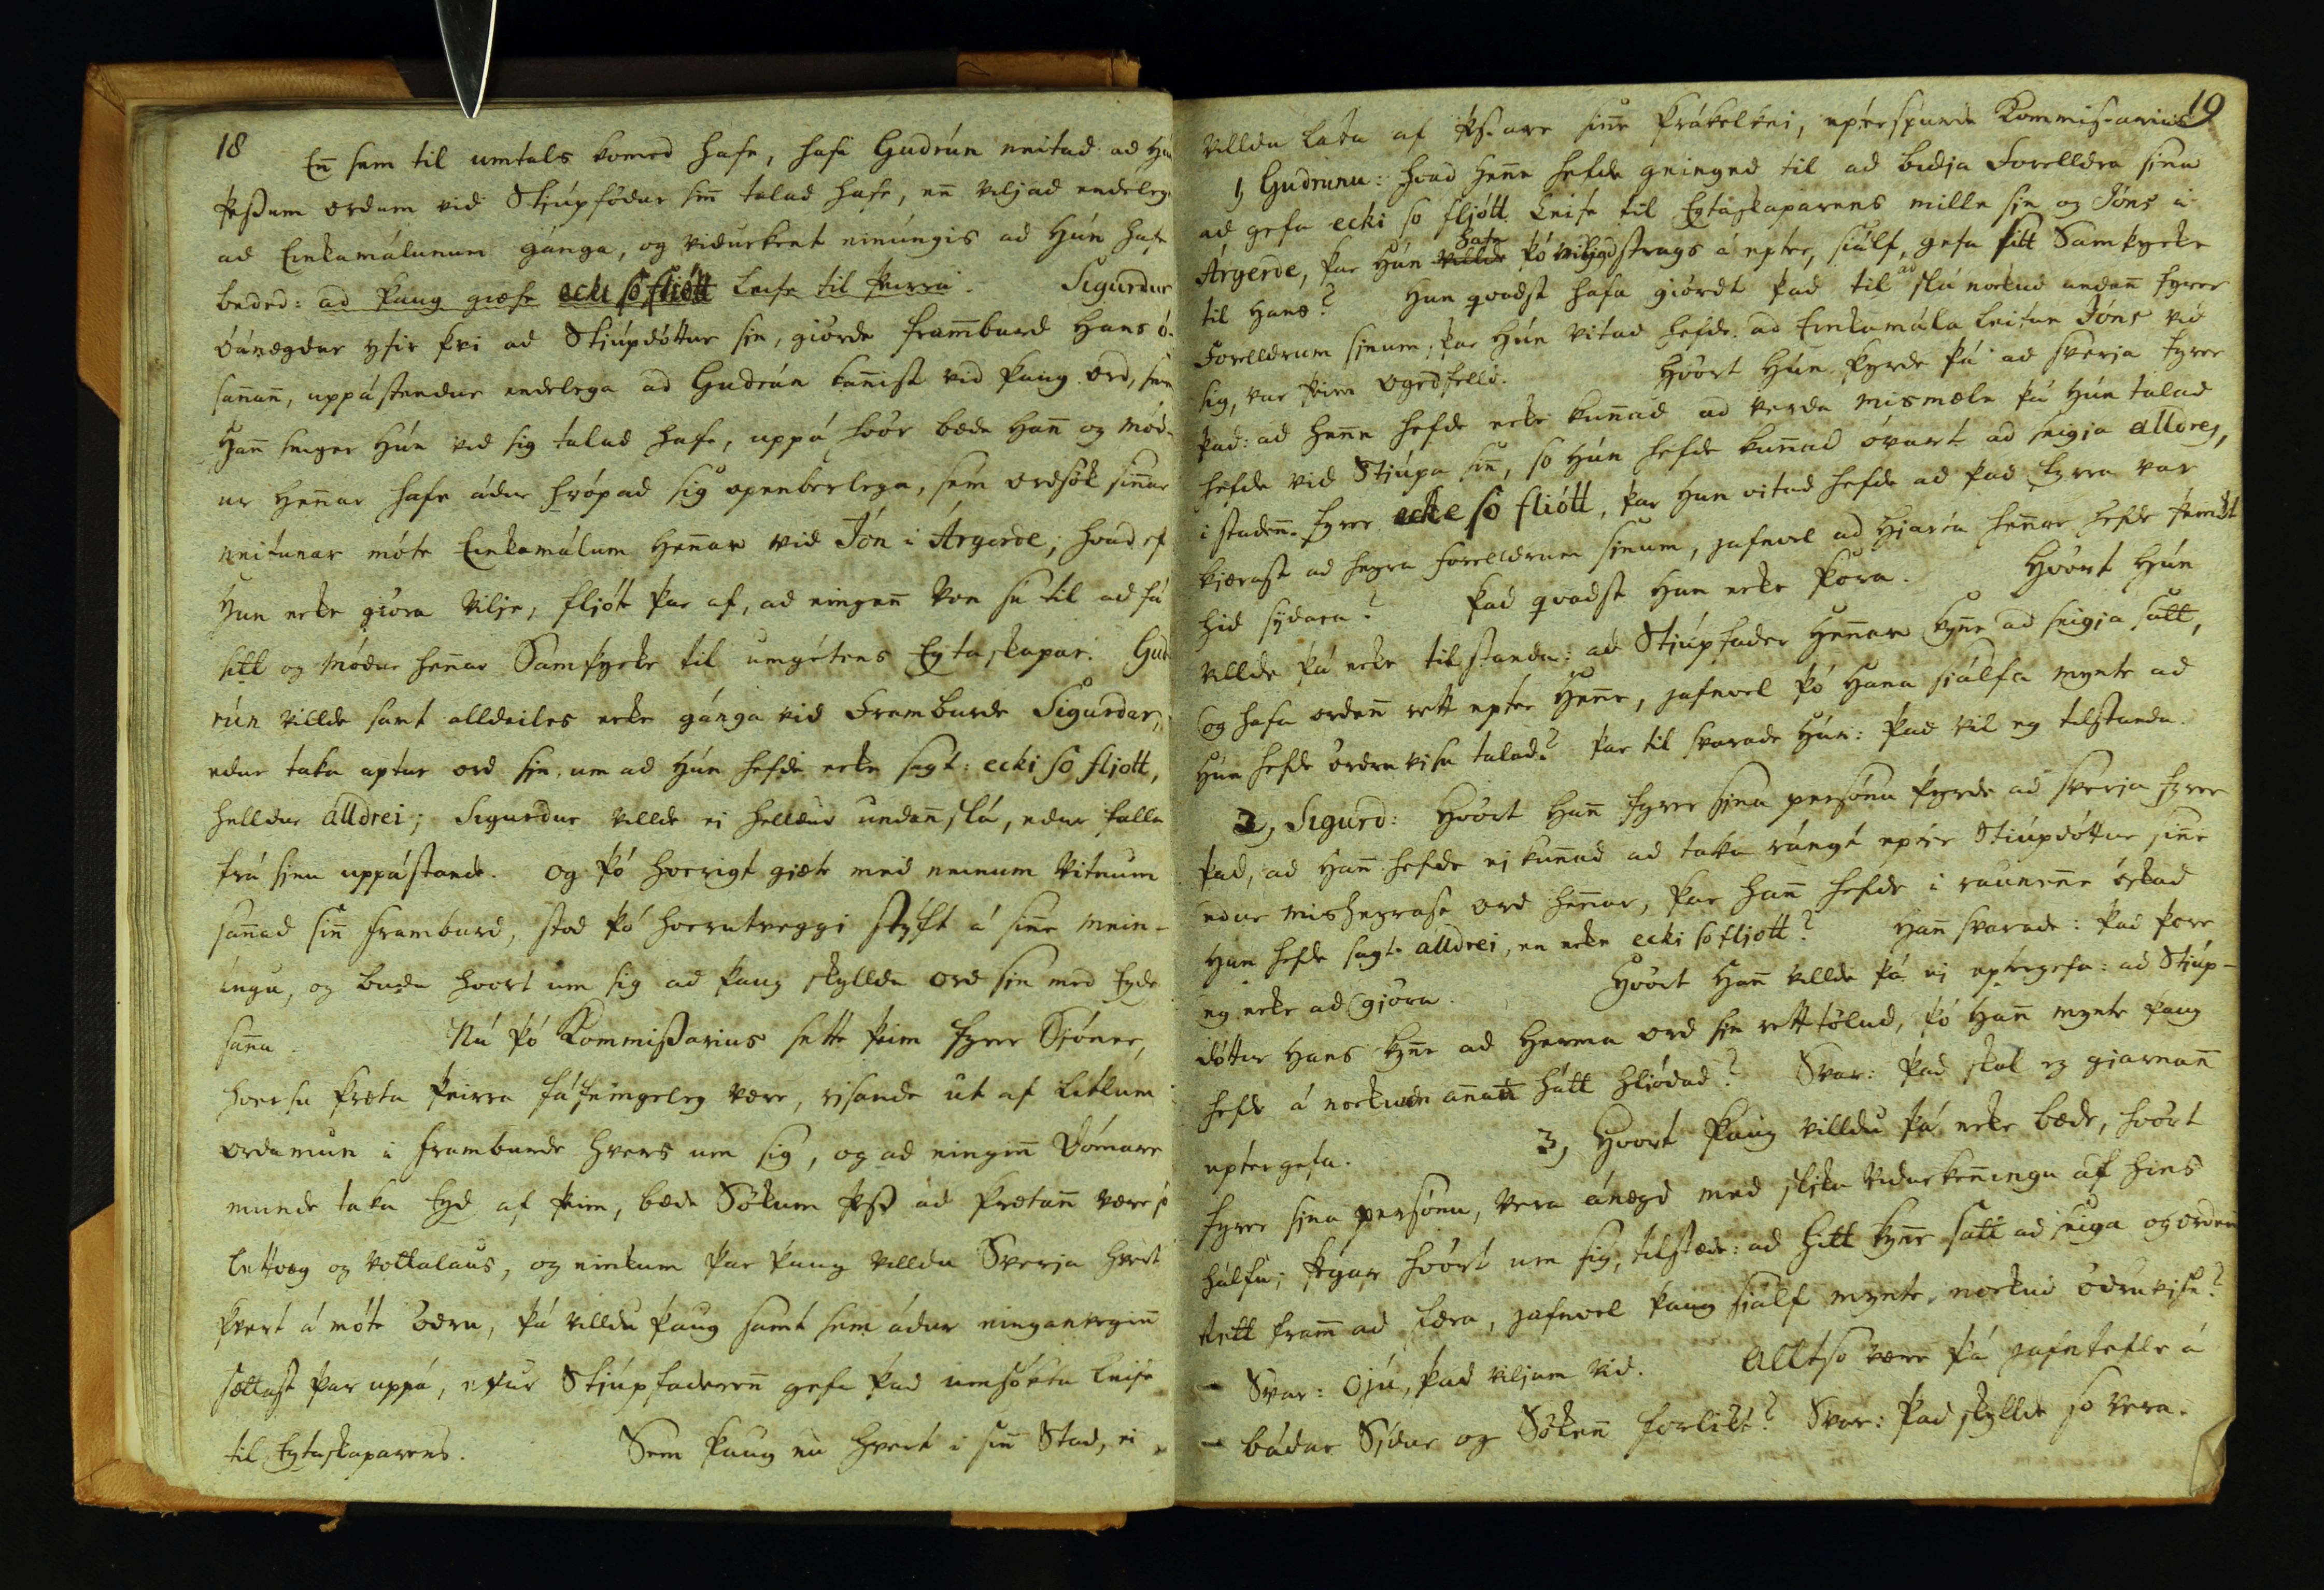 18
En̄ sem til umtals komed hafe, hafi Gudrún neitad ad Hún
þeßum ordum vid Stjúpfödur sin̄ talad hafe, en̄ viljad endeleg.
ad Einkamálunum gánga, og vidurkent einúngis ad Hún hafe
beded: ad þaug giæfe ecki so fliótt Leife til þeirra. Sigurdur
óánægdur yfir þvi ad Stiúpdóttur sin, giörde fram̄burd Hans ó-
san̄an̄, uppástendur endelega ad Gudrún kan̄ist vid þaug ord, sem
Han̄ seiger Hún vid sig talad hafe, uppá hvör bæde Han̄ og Mód-
er Hen̄ar hafe ádur hrópad sig openberlega, sem ordsök sin̄ar
neitunar móte Einkamálum Hen̄ar vid Jón i Árgerde; hvad ef
Hun ecke giöra vilje, fljóte þar af, ad eingen̄ von sie til ad fá
sitt og Módur hen̄ar Samþycke til umgétens Egtaskapar. Gud-
rún villde samt alldeiles ecke gánga vid Framburde Sigurdar,
edur taka aptur ord sjn, um ad Hún hefdi ecke sagt: ecki so fliott,
helldur alldrei; Sigurdur villde ei helldur undan̄ slá, edur falla
frá sjnu uppástande. og þó hverigt giæte med neinum Vitnum
san̄ad sin̄ framburd, stod þó hverutveggi styft á sin̄e mein-
ingu, og budu hvört um sig ad þaug skylldu ord sjn med Eyde
san̄a. Nú þó Kommißarius sette þeim fyrer Siöner,
hversu þræta þeirra fáfeingeleg være, rjsande út af litlum
ordamun i framburde hvers um sig, og ad eingin̄ Dómare
munde taka Eyd af þeim, bæde Sökum þeß ad þrætan̄ være so
lettvæg og vottalaus, og einkum þar þaug villdu Sverja hvert
þvert á móte ödru, þá villdu þaug samt sem ádur einganvegin̄
sættast þar uppá, edur Stjúpfaderen̄ gefa þad umsókta Leife
til Egtaskaparens. Sem þaug nu hvert i sin̄ Stad, ei
19
villdu láta af þßare sin̄e þrákelkni, epterspurde Kommissarius
1, Gudrunu: hvad hen̄e hefde geinged til ad bidja Forelldra sjna
ad gefa ecki so fljótt Leife til Egtaskaparens mille sjn og Jóns á
Árgerde, þar Hún villde hafe þó viliad strags á epter, siálf, gefa sitt Samþycke
til Hans? Hun qvadst hafa giördt þad til ad slá nockud undan̄ fyrer
Forelldrum sjnum, þar Hún vitad hefde ad Einkamála leitun Jóns vid
sig, var þeim ogedfelld. Hvört Hún þyrde þá ad sverja fyrer
þad: ad hen̄e hefde ecke kun̄ad ad verda mismæle þá Hún talad
hefde vid Stjúpa sin̄, so Hún hefde kun̄ad óvart ad seigja alldrej,
i staden̄ fyrer ecke so fliótt, þar Hun vitad hefde ad þad fyrra var
kiærast ad heyra Forelldrum sjnum, jafnvel ad Hjarta hen̄ar hefde þeinkt
hid sydara? þad qvadst Hun ecke þora. Hvört Hún
villde þá ecke tilstanda: ad Stjúpfader Hen̄ar kyn̄e ad seigja satt,
og hafa orden̄ rett epter Hen̄e, jafnvel þó Hana sjálfa mynte ad
Hún hefde ödruvisu talad? Þar til svarade Hún: þad vil eg tilstanda.
2, Sigurd: Hvört Han̄ fyrer sjna persónu þyrde ad sverja fyrer
þad, ad Han̄ hefde ej kun̄ad ad taka rángt epter Stiúpdóttur sin̄e
edur misheyrast ord hen̄ar, þar han̄ hefde i raunen̄e óskad
Hún hefde sagt alldrei, en ecke ecki so fljott? Han̄ svarade: þad þore
eg ecke ad giöra. Hvört Han̄ villde þá ej eptergefa: ad Stiúp-
dótter Hans kyn̄e ad Herma ord sjn rett tölud, þó Han̄ mynte þaug
hefde á nockurn an̄an̄ hátt hliódad? Svar: þad skal eg gjarnan̄
eptergefa. 3, Hvört þaug villdu þá ecke bæde, hvört
fyrer sjna persónu, vera ánægd med slika vidurken̄ingu af hins
hálfu; þegar hvört um sig, tilstæde: ad Hitt kyn̄e satt ad seiga og orden
rett fram̄ ad færa, jafnvel þaug sjálf mynte nockud ödruvise?
Svar: Ojú, þad viljum vid. Alltso være þá jafntefle á
bádar Sjdur og Söken̄ forlikt? Svar: þad skyllde so vera.